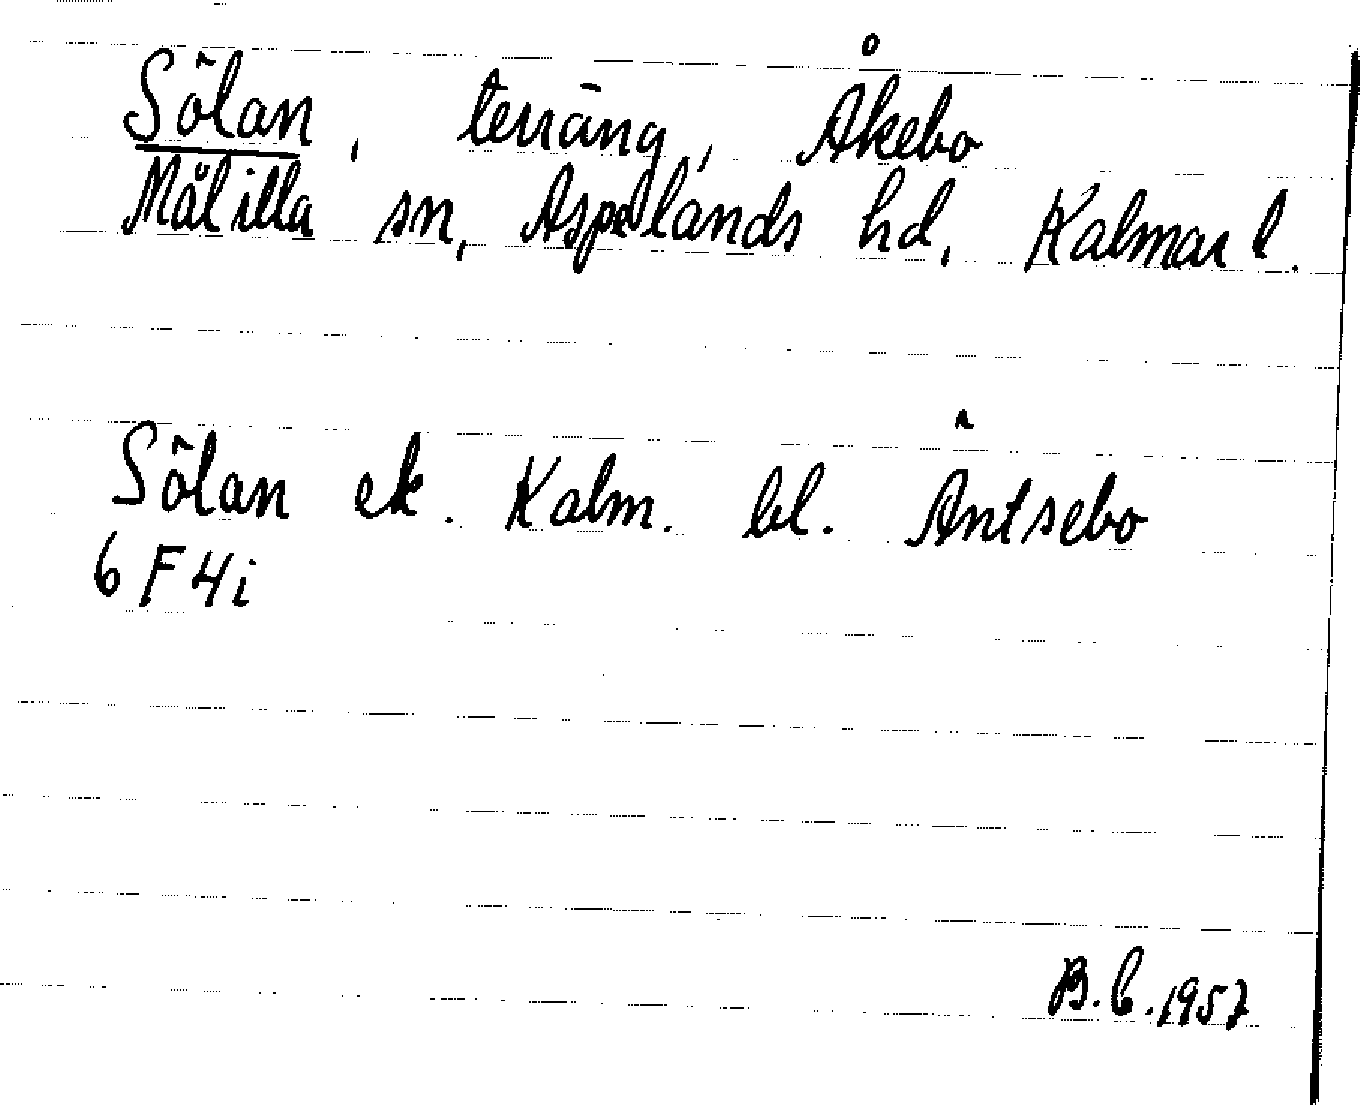 Sölan, terräng, Åkebo
Målilla sn, Aspelands hd, Kalmar l.
Sölan ek. Kalm. bl. Äntsebo
6 F 4 i
B. C. 1957